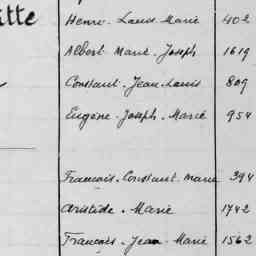 itte
Henri - Louis - Marie 402
Albert - Marie - Joseph 1619
Constant - Jean-Louis 809
Eugène - Joseph - Marie 954
François - Constant - Marie 394
Aristide - Marie 1742
François - Jean - Marie 1562